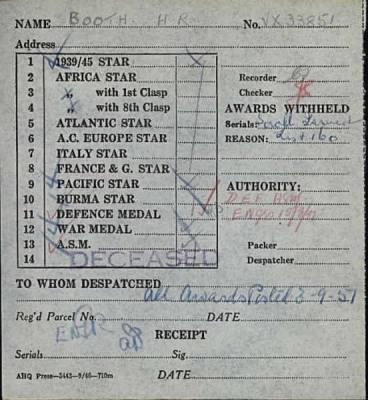 NAME BOOTH H R No. VX33851
Address
1 1939/45 STAR
2 AFRICA STAR
3 " with 1st Clasp
4 " with 8th Clasp
5 ATLANTIC STAR
6 A.C. EUROPE STAR
7 ITALY STAR
8 FRANCE & G. STAR
9 PACIFIC STAR
10 BURMA STAR
11 DEFENCE MEDAL
12 WAR MEDAL
13 A.S.M.
14
DECEASED
Recorder
Checker
AWARDS WITHHELD
Serials:
REASON: List 160
AUTHORITY:
DEF
Packer
Despatcher
TO WHOM DESPATCHED
All Awards Posted 3-9-57
Reg'd Parcel No. DATE
RECEIPT
Serials Sig.
AHQ Press—3443—9/46—710m DATE